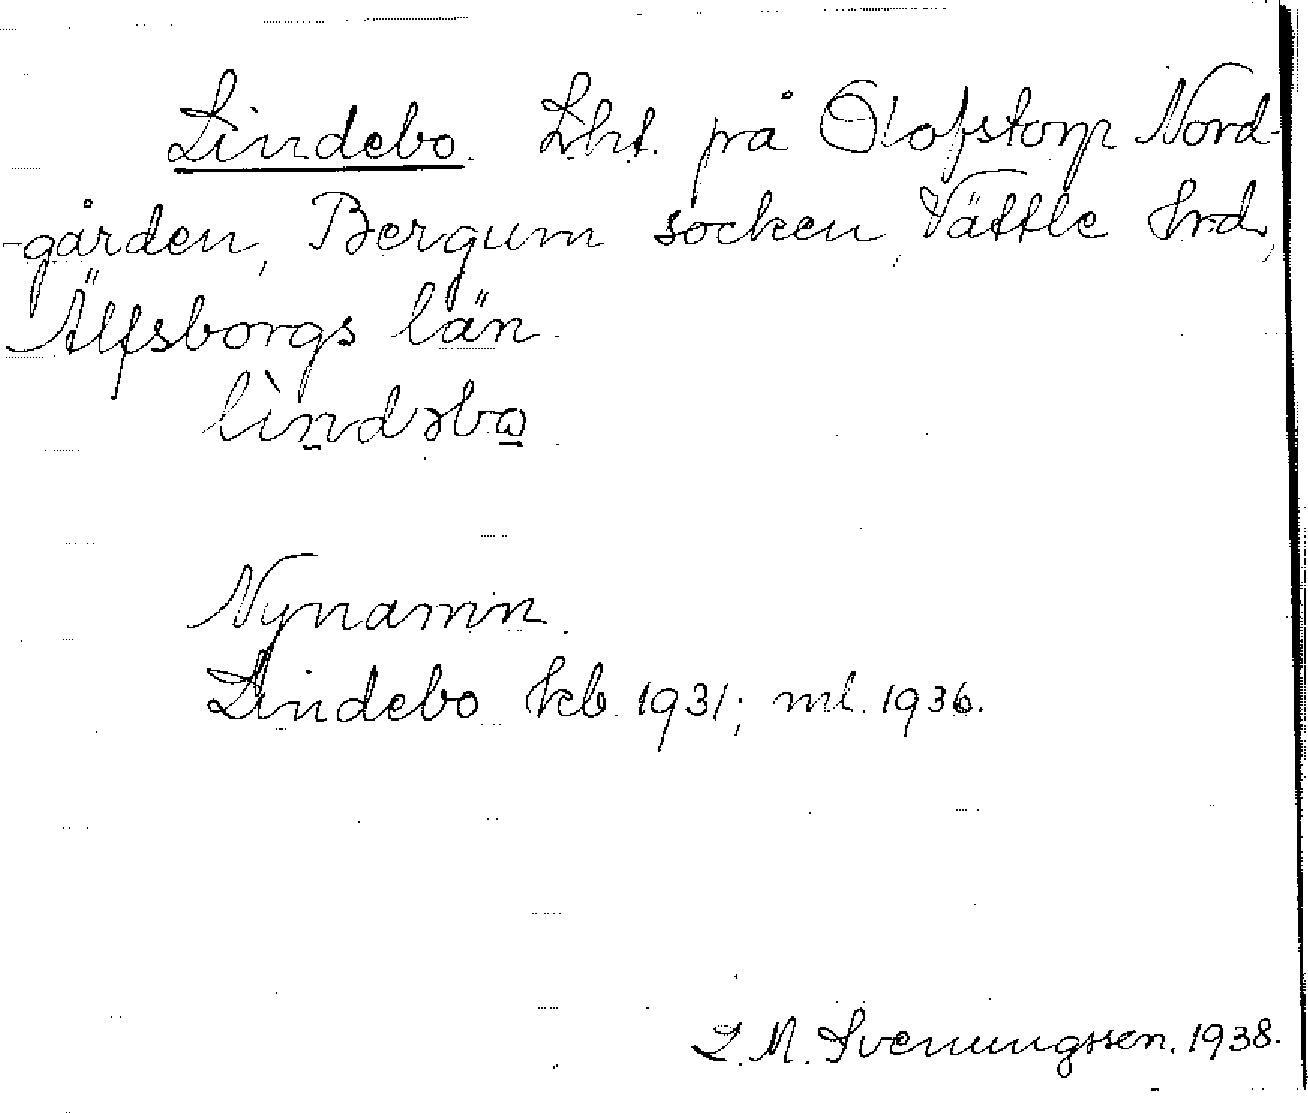 Lindebo. Lht. på Olofstorp Nord-
-gården, Bergum socken, Vättle hrd,
Älfsborgs län.
lìndəbo
Nynamn.
Lindebo kb. 1931; ml. 1936.
L. M. Svenungsson. 1938.